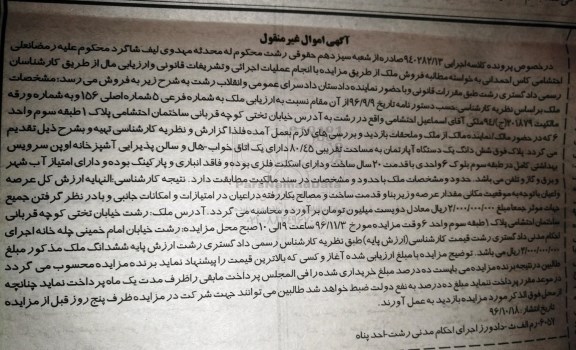 آگهی اموال غیر منقول
در خصوص پرونده کلاسه اجرایی ۹۴۰۲۸۲/۱۳ صادره از شعبه سیزدهم حقوقی رشت محکوم له محدثه مهدوی لیف شاگرد محکوم علیه رمضانعلی
احتشامی کاس احمدانی به خواسته مطالبه فروش ملک از طریق مزایده با انجام عملیات اجرائی و تشریفات قانونی و ارزیابی مال از طریق کارشناسان
رسمی دادگستری رشت طبق مقررات قانونی و با حضور نماینده دادستان دادسرای عمومی و انقلاب رشت به شرح زیر به فروش می رسد: مشخصات
ملک بر اساس نظریه کارشناسی: حسب دستور نامه تاریخ ۹۶/۹/۹ از آن مقام نسبت به ارزیابی ملک به شماره فرعی ۵ شماره اصلی ۱۵۶ و به شماره ورقه
مالکیت ملکی آقای اسماعیل احتشامی واقع در رشت به آدرس خیابان تختی کوچه قربانی ساختمان احتشامی پلاک ۱ طبقه سوم واحد
۶ که در حضور مالک/نماینده مالک از ملک و ملحقات بازدید و بررسی های لازم بعمل آمده فلذا گزارش و نظریه کارشناسی تهیه و بشرح ذیل تقدیم
می گردد. پلاک فوق شش دانگ یک دستگاه آپارتمان به مساحت تقریبی ۸۰/۴۵ دارای یک اتاق خواب-هال و سالن پذیرایی آشپزخانه اوپن سرویس
بهداشتی کامل در طبقه سوم بلوک ۶ واحدی با قدمت ۲۰ سال ساخت و دارای اسکلت فلزی بوده و فاقد انباری و پارکینگ بوده و دارای امتیاز آب شهر
و برق و گاز و تلفن می باشد. حدود و مشخصات ملک با حدود و مشخصات در سند مالکیت مطابقت دارد. نتیجه کارشناسی: النهایه ارزش کل عرصه
و اعیان با توجه به موقعیت مکانی مقدار عرصه و زیربنا و قدمت ساخت و مصالح بکار رفته در اعیان در امتیازات و امکانات جانبی و با در نظر گرفتن جمیع
جهات موثر جمعا مبلغ ۲/۰۰۰/۰۰۰/۰۰۰ ریال معادل دویست میلیون تومان برآورد و محاسبه می گردد. آدرس ملک: رشت خیابان تختی کوچه قربانی
ساختمان احتشامی پلاک ۱ طبقه سوم واحد ۶ وقت مزایده مورخ ۹۶/۱۱/۳ ساعت ۹ الی ۱۰ صبح محل مزایده: رشت خیابان امام خمینی چله خانه اجرای
احکام مدنی دادگستری رشت قیمت کارشناسی (ارزش پایه) طبق نظریه کارشناس رسمی دادگستری رشت ارزش پایه ششدانگ ملک مذکور مبلغ
۲/۰۰۰/۰۰۰/۰۰۰ ریال می باشد. توضیح مزایده با مبلغ ارزیابی شده آغاز و کسی که بالاترین قیمت را پیشنهاد نماید برنده مزایده محسوب می گردد
طالبین در نتیجه برنده مزایده می بایست ده درصد مبلغ خریداری شده را فی المجلس پرداخت مابقی را ظرف مدت یک ماه پرداخت نماید چنانچه
در موعد مقرر پرداخت ننماید مبلغ ده درصد به نفع دولت ضبط خواهد شد طالبین می توانند جهت شرکت در مزایده ظرف پنج روز قبل از مزایده
از محل فوق الذکر مورد مزایده بازدید به عمل آورند.
تاریخ انتشار: ۹۶/۱۰/۱۸
رم الف ث - دادورز اجرای احکام مدنی رشت - احد پناه